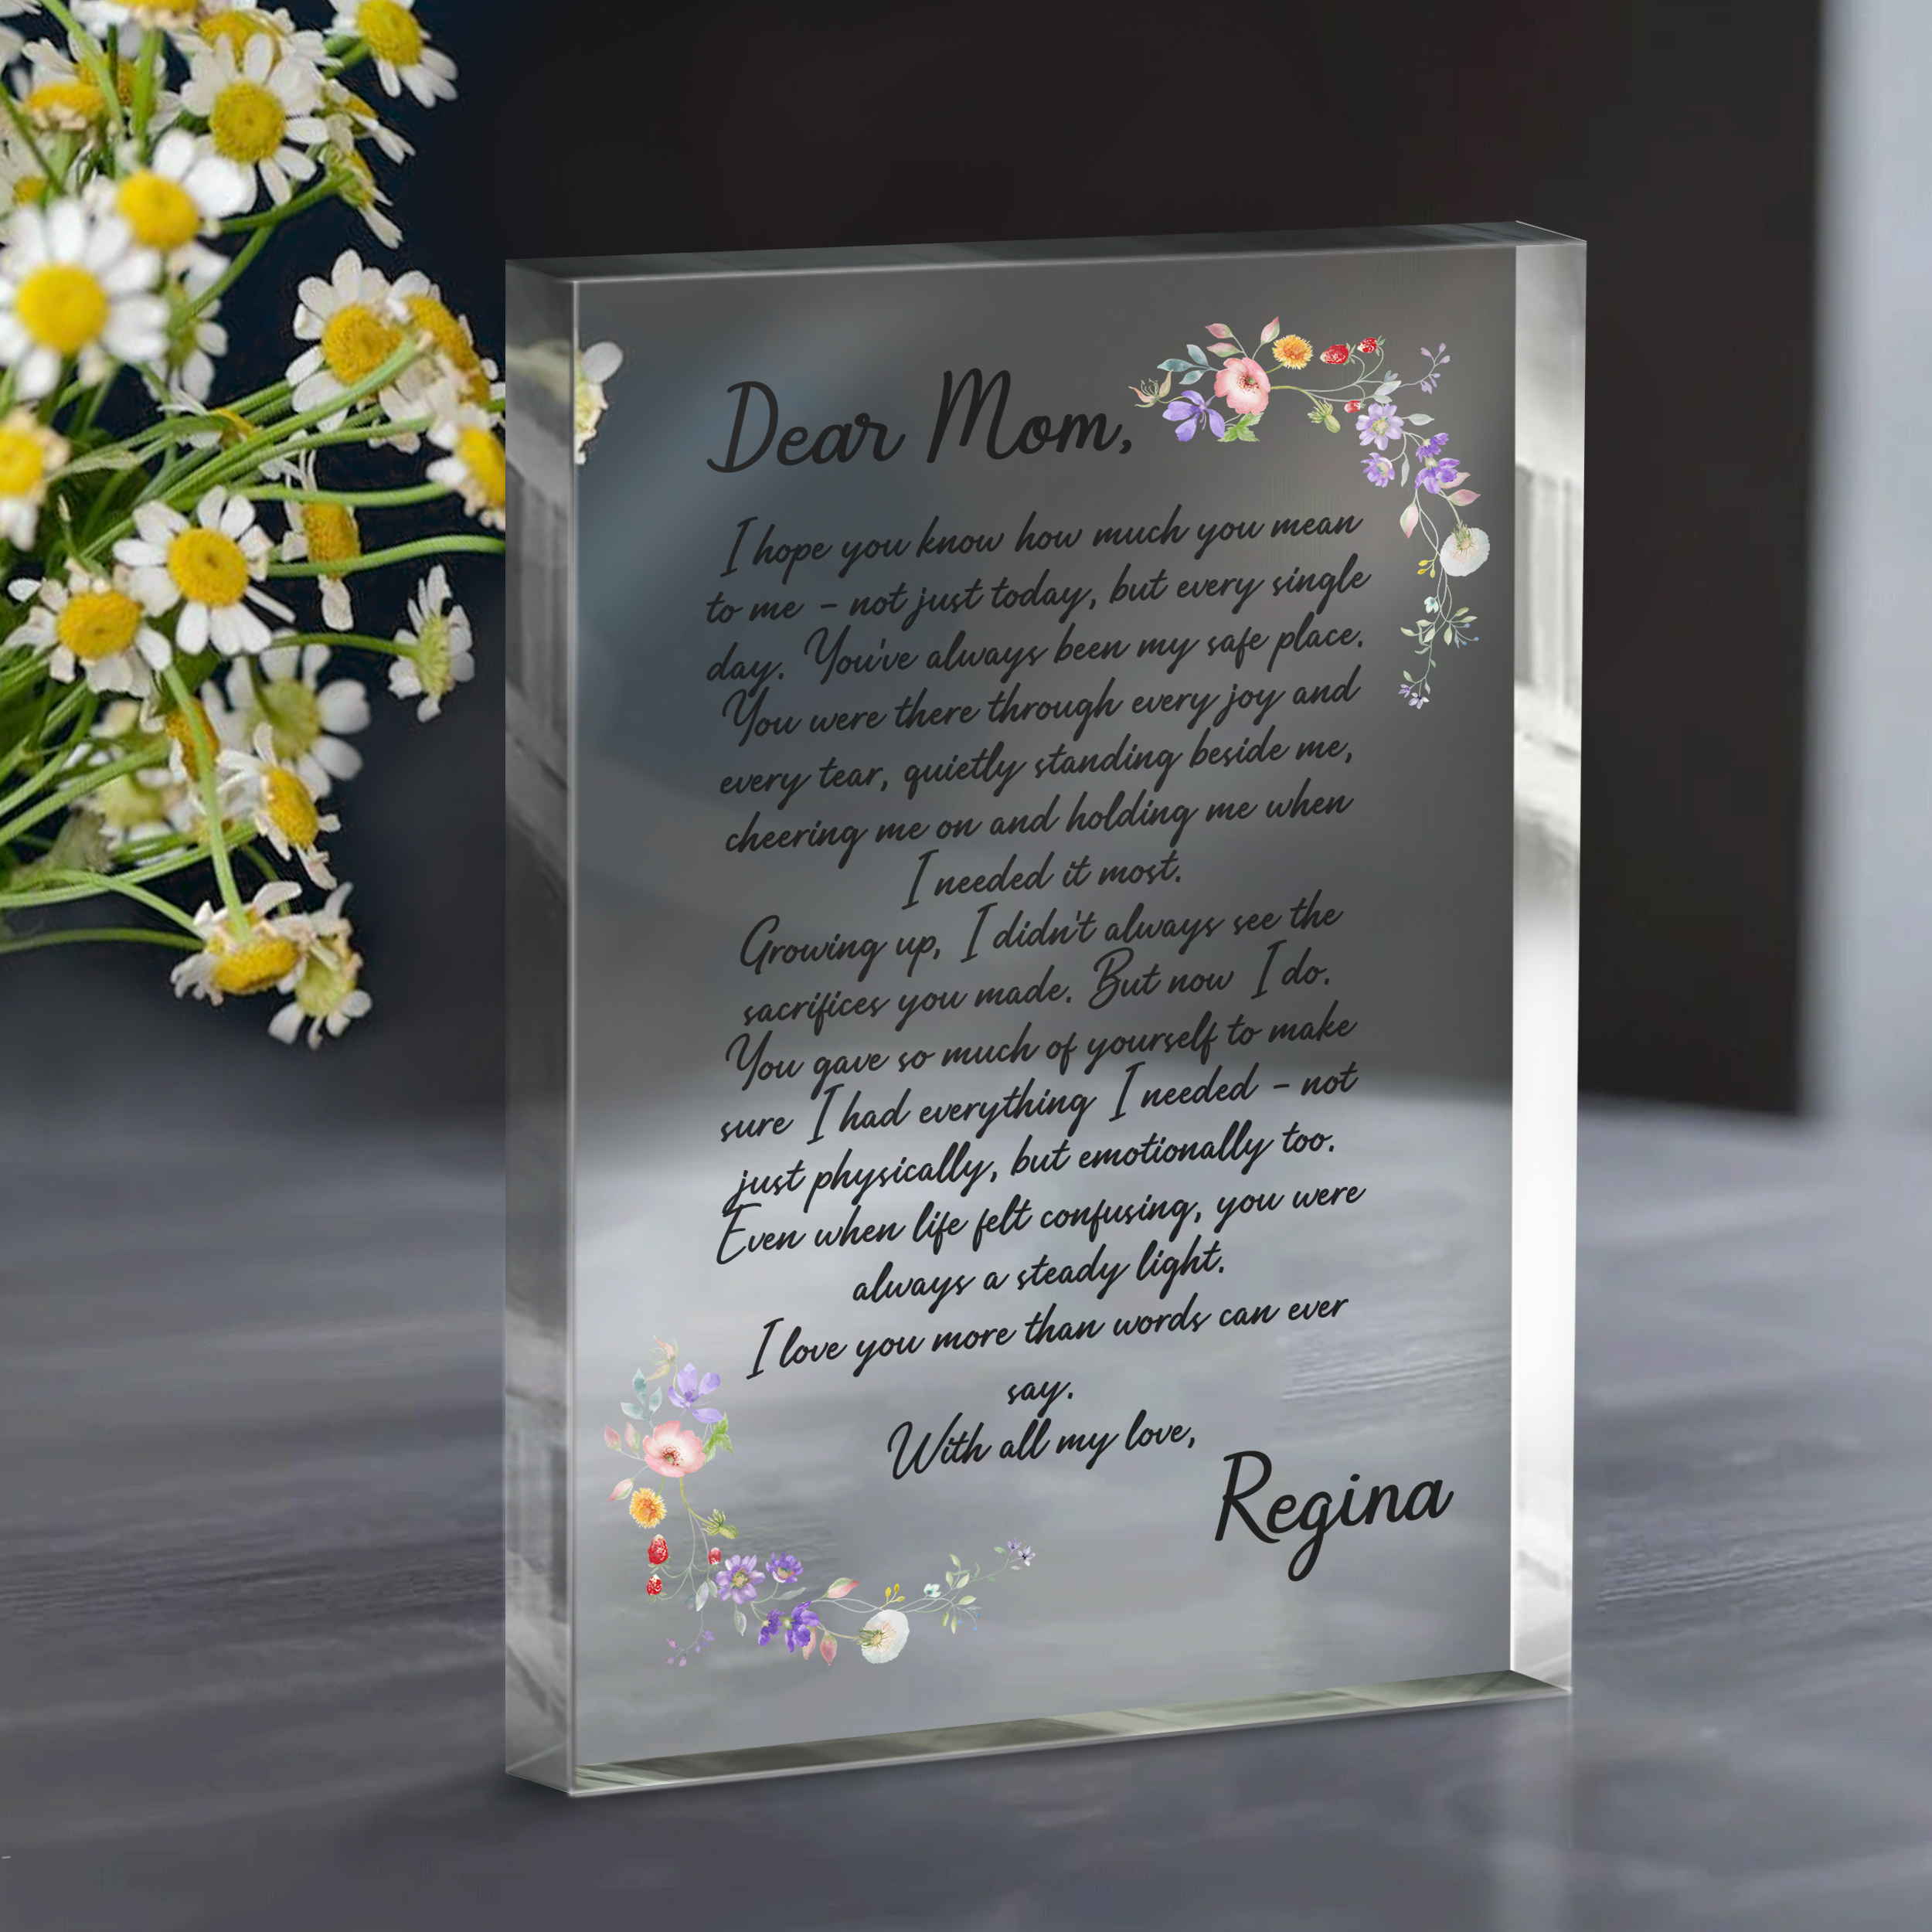 Dear Mom,
I hope you know how much you mean
to me - not just today, but every single
day. You've always been my safe place.
You were there through every joy and
every tear, quietly standing beside me,
cheering me on and holding me when
I needed it most.
Growing up, I didn't always see the
sacrifices you made. But now I do.
You gave so much of yourself to make
sure I had everything I needed - not
just physically, but emotionally too.
Even when life felt confusing, you were
always a steady light.
I love you more than words can ever
say.
With all my love,
Regina